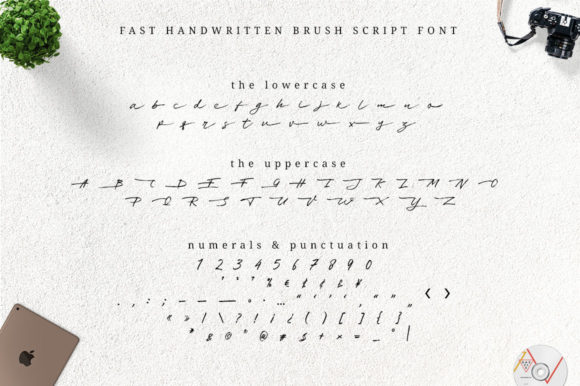 FAST HANDWRITTEN BRUSH SCRIPT FONT
the lowercase
a b c d e f g h i j k l m n o
p q r s t u v w x y z
the uppercase
A B C D E F G H I J K L M N O
P Q R S T U V W X Y Z
numerals & punctuation
1 2 3 4 5 6 7 8 9 0
. , : ; - – — _ • · … " ' ‘ ’ ‚ “ ” „ ‹ ›
« » | \ ? ! ¡ ¿ ( ) [ ] { }
* & © ® @ # $ + × = _ ° |